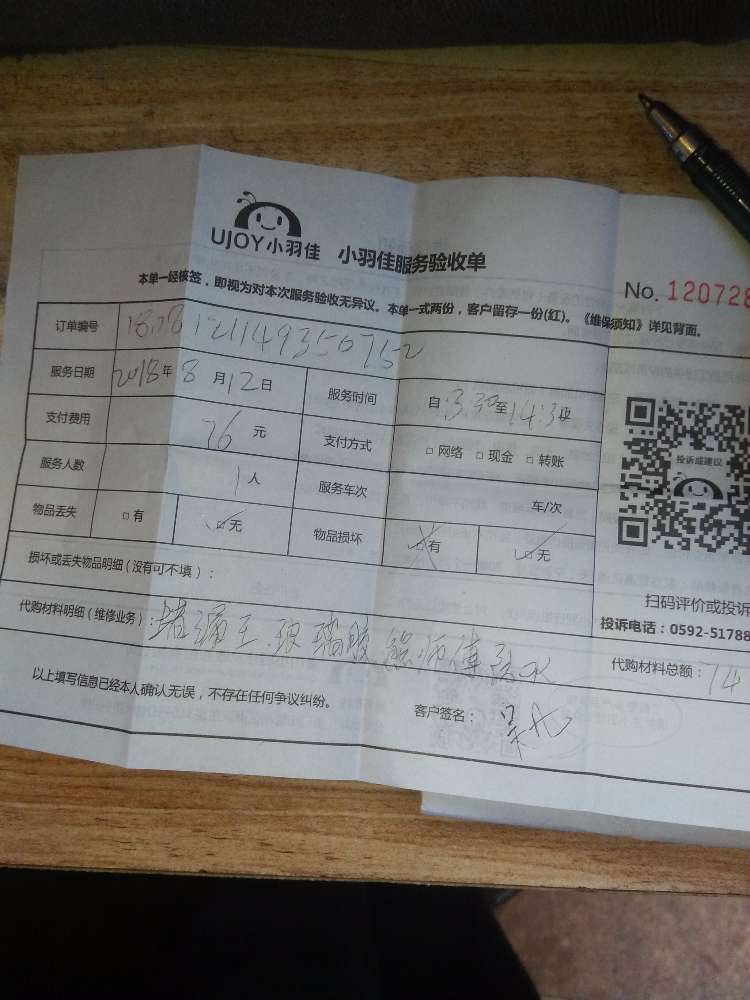 UJOY小羽佳 小羽佳服务验收单
No. 120728
本单一经核签，即视为对本次服务验收无异议。本单一式两份，客户留存一份(红)。《维保须知》详见背面。
订单编号
服务日期 2018年 8月12日 服务时间 自 3:30至14:30
支付费用 76元 支付方式 □ 网络 □ 现金 □ 转账
服务人数 1人 服务车次 车/次
物品丢失 □ 有 □ 无 物品损坏 □ 有 □ 无
投诉或建议
损坏或丢失物品明细（没有可不填）：
扫码评价或投诉
投诉电话：0592-51788
代购材料明细（维修业务）：堵漏王 玻璃胶
代购材料总额：14
以上填写信息已经本人确认无误，不存在任何争议纠纷。
客户签名：